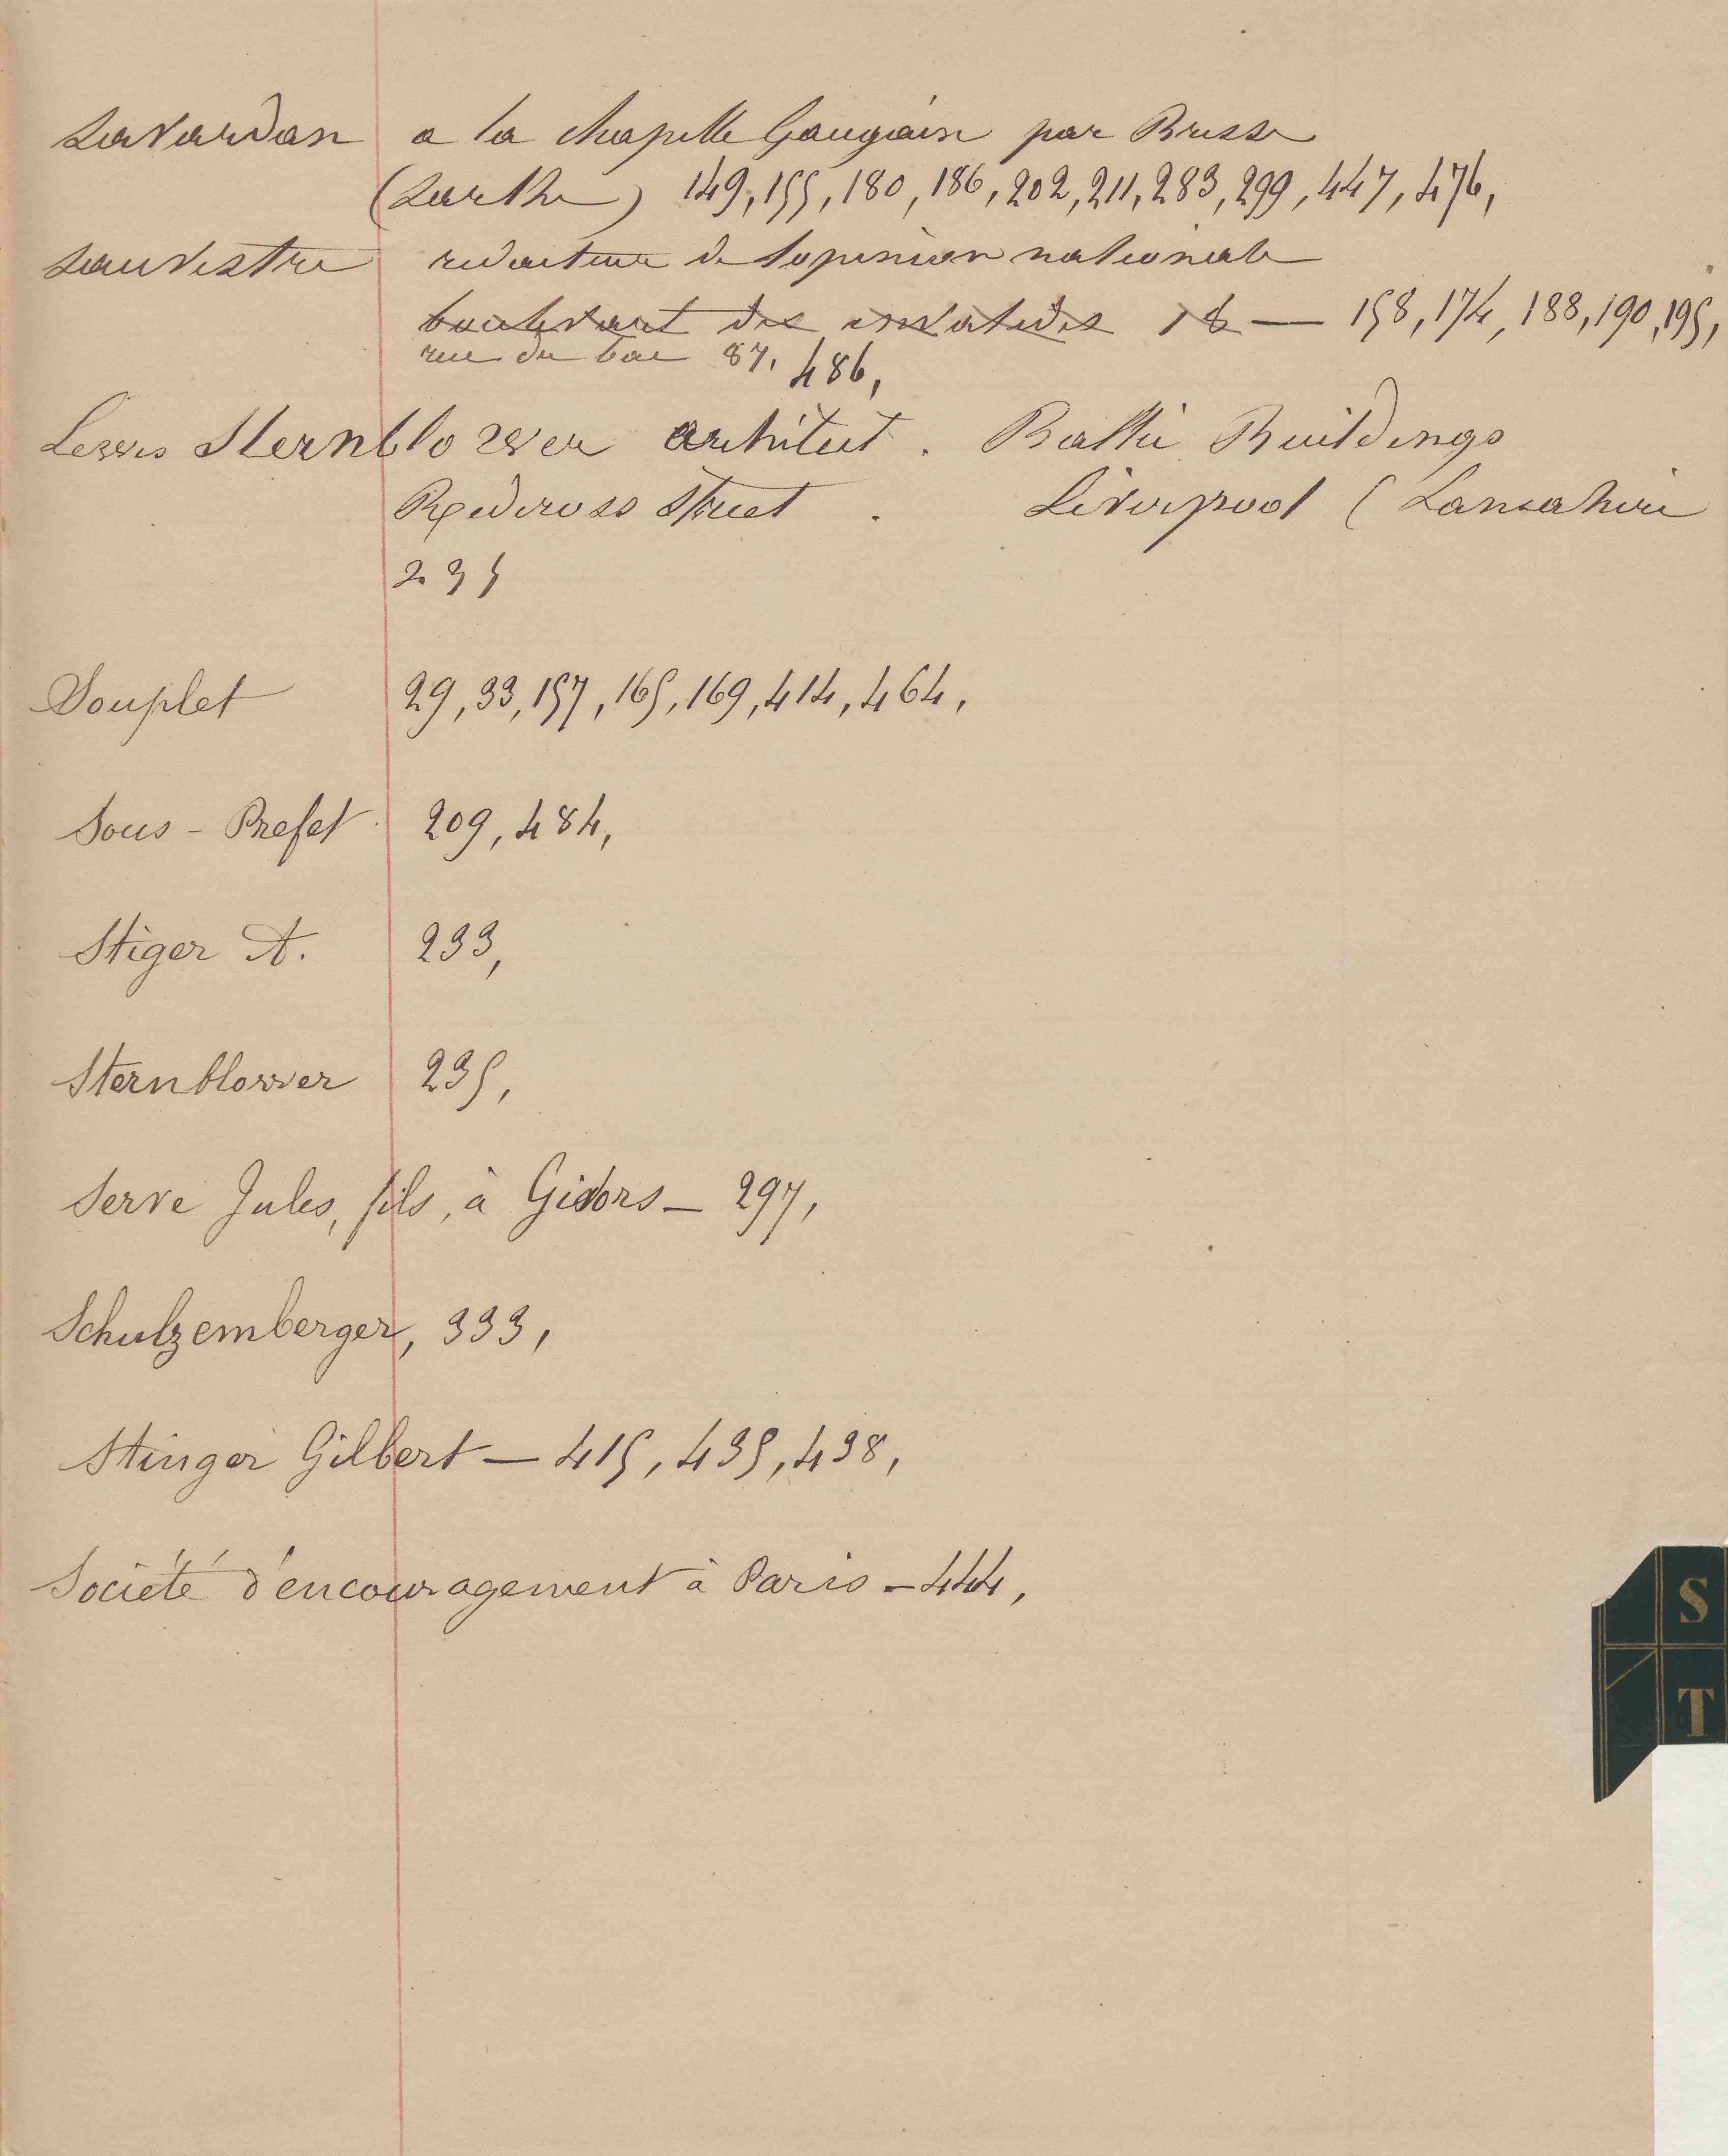 Savardan a la chapelle Gaugain par Bresse
(Sarthe) 149, 155, 180, 186, 202, 211, 283, 299, 447, 476,
Sauvestre redacteur de lopinion nationale
boulevart des invalides 18 — 158, 174, 188, 190, 195,
rue du bac 87. 486,
Lewis Sternblower architect . Baltic Buildings
Redcross Street . Liverpool ( Lancashire
235
Souplet 29, 33, 157, 165, 169, 414, 464,
Sous - Prefet 209, 484,
Stiger A. 233,
Sternblower 235,
Serve Jules, fils, à Gisors — 297,
Schulzemberger, 333,
Stinger Gilbert — 415, 435, 438,
Société d'encouragement à Paris — 444,
S
T